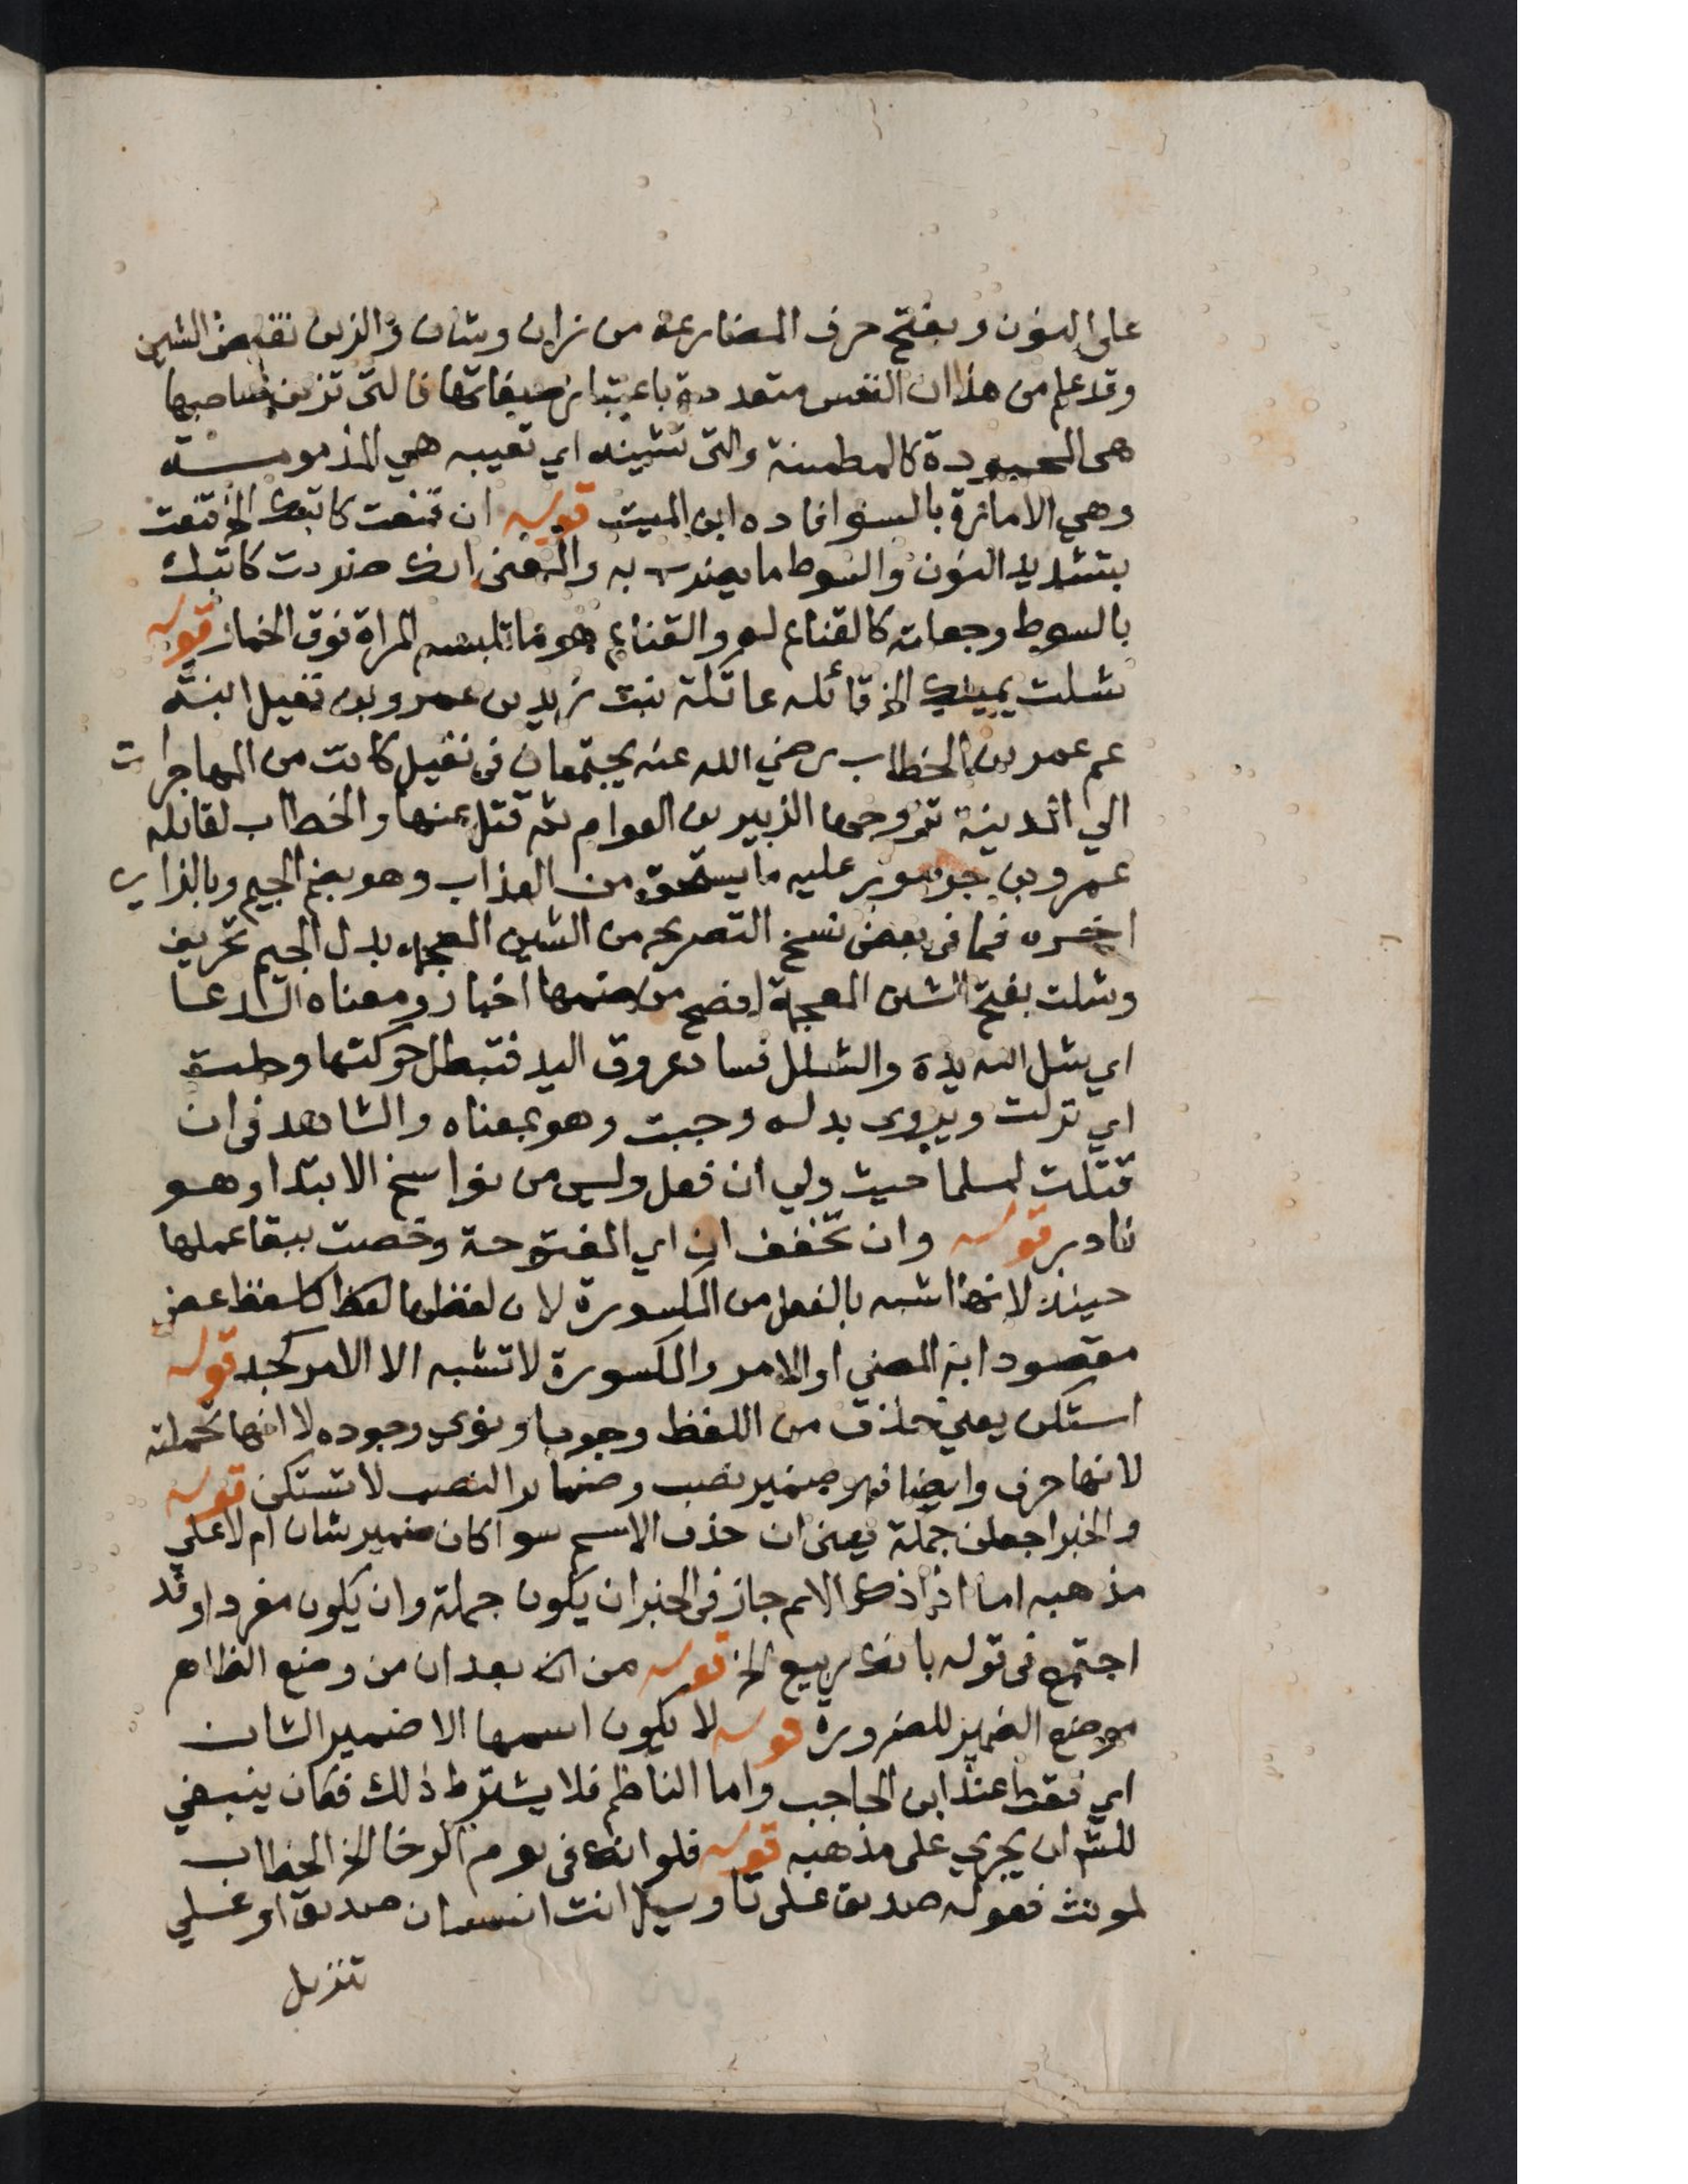 على النون وبفتح حرف المضارعة من زان وشان والزين نقيض الشين
وقد علم من هذا ان النفس متعددة باعتبار صفاتها فالتى تزين صاحبها
هى المحمودة كالمطمئنة والتى تشينه اي تعيبه هي المذمومة
وهي الامارة بالسو افاده ابن الميت قوله ان قنعت كاتبك الخ قنعت
بتشديد النون والسوط ما يضرب به والمعنى انك ضربت كاتبك
بالسوط وجعلته كالقناع له والقناع هو ما تلبسه المراة فوق الخمار قوله
شلت يمينك الخ قائله عاتكة بنت زيد بن عمرو بن نفيل ابنة
عم عمر بن الخطاب رضي الله عنه يجتمعان فى نفيل كانت من المهاجرات
الي المدينة تزوجها الزبير بن العوام ثم قتل عنها والخطاب لقاتله
عمرو بن جرموز عليه ما يستحق من العذاب وهو بضم الجيم وبالزاي
اخره فما فى بعض نسخ التصريح من الشين المعجمة بدل الجيم تحريف
وشلت بفتح الشين المعجمة افصح من ضمها اخبار ومعناه الدعا
اي شل الله يده والشلل فساد عروق اليد فتبطل حركتها وحلت
اي نزلت ويروى بدله وجبت وهو بمعناه والشاهد فى ان
قتلت لمسلما حيث ولي ان فعل وليس من نواسخ الابتدا وهو
نادر قوله وان تخفف ان اي المفتوحة وخصت ببقا عملها
حينئذ لانها اشبه بالفعل من المكسورة لان لفظها لفظا كلفظ عض
مقصودا به المضي او الامر والمكسورة لا تشبه الا الامر كجد قوله
استكن يعني حذف من اللفظ وجوبا ونوي وجوده لا انها تحملته
لانها حرف وايضا فهو ضمير نصب وضماير النصب لا تستكن قوله
والخبر اجعلن جملة يعنى ان حذف الاسم سوا كان ضمير شان ام لا على
مذهبه اما اذا ذكر الاسم جاز فى الخبر ان يكون جملة وان يكون مفردا وقد
اجتمع فى قوله بانك ربيع الخ قوله من انك بعد ان من وضع الظاهر
موضع الضمير للضرورة قوله لا يكون اسمها الا ضمير الشان
اي فقط عند ابن الحاجب واما الناظم فلا يشترط ذلك فكان ينبغي
للش ان يجري على مذهبه قوله فلو انك فى يوم الرخا الخ الخطاب
لمونث فقوله صديق على تاويل انت انسان صديق او علي
تنزيل